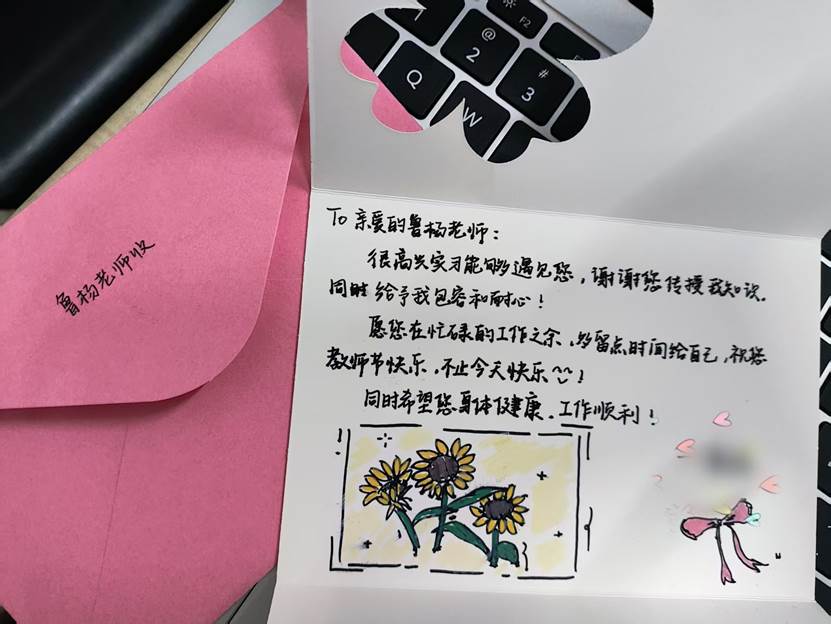 1
@
2
#
3
F2
Q
W
鲁杨老师收
To 亲爱的鲁杨老师：
很高兴实习能够遇见您，谢谢您传授我知识。
同时给予我包容和耐心！
愿您在忙碌的工作之余、多留点时间给自己，祝您
教师节快乐，不止今天快乐！
同时希望您身体健康、工作顺利！